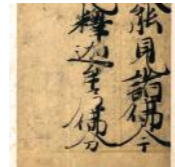 能見諸佛今
釋迦牟佛分